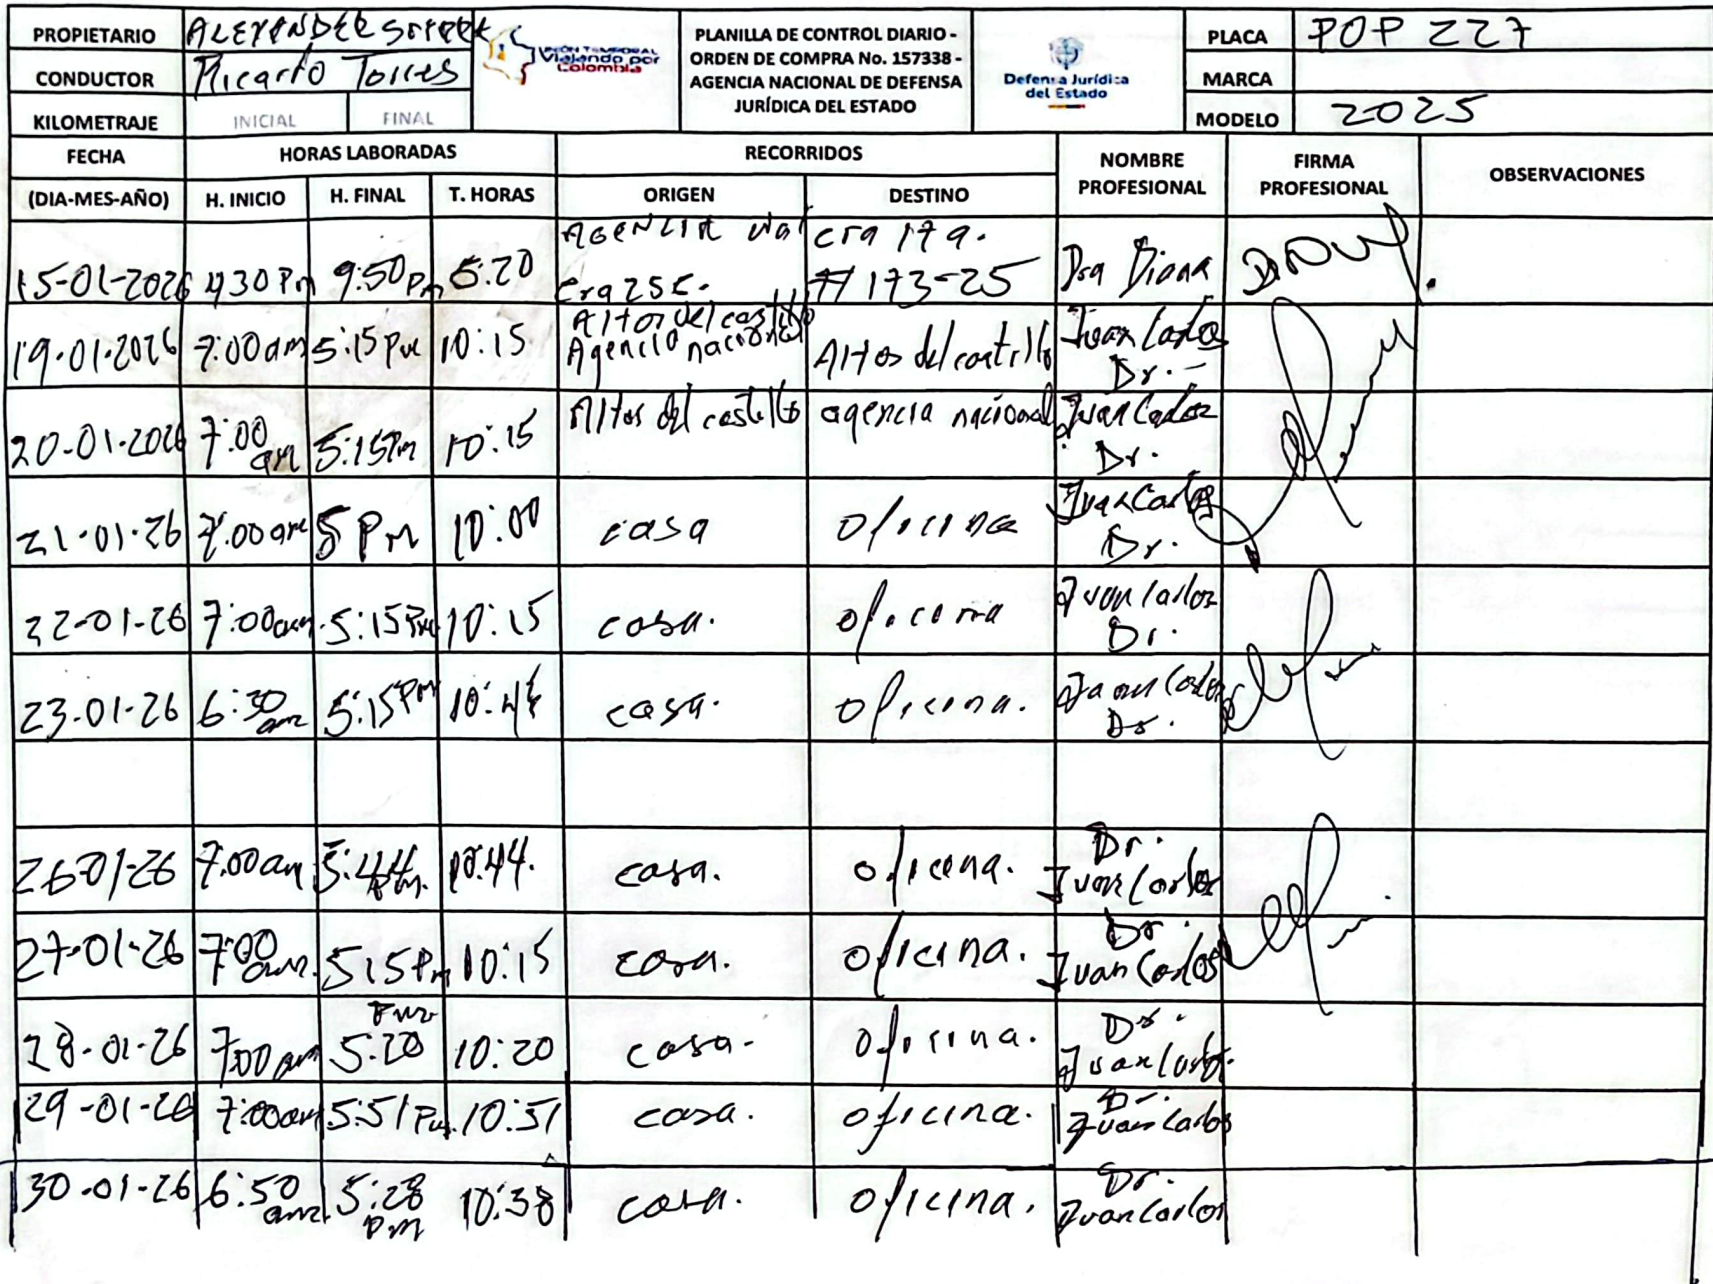 PROPIETARIO ALEXANDER
CONDUCTOR Ricardo Torres
KILOMETRAJE INICIAL FINAL
UNIÓN TEMPORAL
Viajando por
Colombia
PLANILLA DE CONTROL DIARIO -
ORDEN DE COMPRA No. 157338 -
AGENCIA NACIONAL DE DEFENSA
JURÍDICA DEL ESTADO
Defensa Jurídica
del Estado
PLACA POP 227
MARCA
MODELO 2025
FECHA HORAS LABORADAS RECORRIDOS NOMBRE PROFESIONAL FIRMA PROFESIONAL OBSERVACIONES
(DIA-MES-AÑO) H. INICIO H. FINAL T. HORAS ORIGEN DESTINO
AGENCIA cra 17 a.
15-01-2026 4 30 Pm 9:50 Pm 5:20 cra 25 # 173-25 Dra Diana
Altos del castillo
19-01-2026 7:00 am 5:15 Pm 10:15 Agencia nacional Altos del castillo Juan Carlos
Dr.
20-01-2026 7:00 am 5:15 Pm 10:15 Altos del castillo agencia nacional Juan Carlos
Dr.
21-01-26 7:00 am 5 Pm 10:00 casa oficina Juan Carlos
Dr.
22-01-26 7:00 am 5:15 Pm 10:15 casa. oficina Juan Carlos
Dr.
23-01-26 6:30 am 5:15 Pm 10:45 casa. oficina. Juan Carlos
Dr.
26-01-26 7:00 am 5:44 pm. 10:44. casa. oficina. Dr.
Juan Carlos
27-01-26 7:00 am. 5:15 Pm 10:15 casa. oficina. Dr.
Juan Carlos
28-01-26 7:00 am 5:20 10:20 casa. oficina. Dr.
Juan Carlos
29-01-26 7:00 am 5:51 Pm. 10:51 casa. oficina. Dr.
Juan Carlos
30-01-26 6:50 am. 5:28 pm 10:38 casa. oficina. Dr.
Juan Carlos